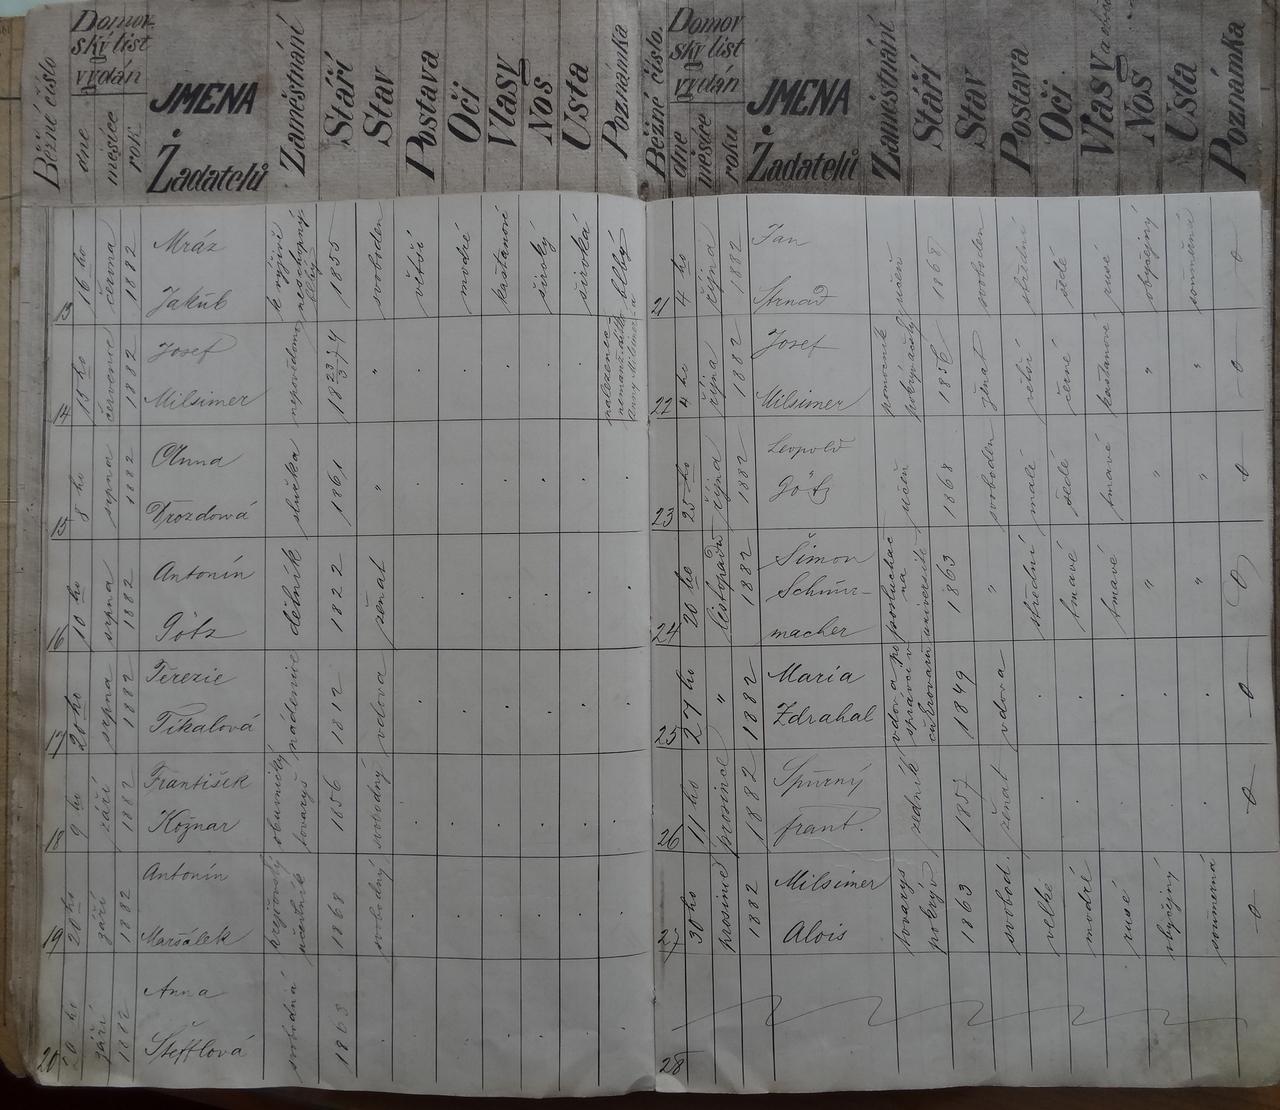 Běžné číslo
Domov-
ský list
vydán
dne
měsíce
roku
JMÉNA
Žadatelů
Zaměstnání
Stáří
Stav
Postava
Oči
Vlasy
Nos
Ústa
Poznámka
Běžné číslo.
Domov
ský list
vydán
dne
měsíce
roku
JMÉNA
Žadatelů
Zaměstnání
Stáří
Stav
Postava
Oči
Vlasy
Nos
Ústa
Poznámka
13 16 ho června 1882 Mráz Jakub k výživě neschopný 1855 svoboden větší modré kaštanové široký široká blbý
14 19 ho července 1882 Josef Milsimer 18 23/3 74 " nalezenec
15 8 ho srpna 1882 Anna Drozdová služka 1861 "
16 10 ho srpna 1882 Antonín Götz dělník 1822 ženat
17 20 ho srpna 1882 Terezie Tikalová nádenice 1812 vdova
18 9 ho září 1882 František Kožnar obuvnický tovaryš 1856 svobodný
19 20 ho září 1882 Antonín Maršálek krejčovský 1868 svobodný
20 20 ho září 1882 Anna Šefflová svobodná 1863
21 4 ho října 1882 Jan Strnad učeň 1868 svoboden střední šedé rusé obyčejný souměrná
22 4 ho října 1882 Josef Milsimer pomocník pokrývačský 1856 ženat větší černé kaštanové " "
23 25 ho října 1882 Leopold Götz učeň 1868 svoboden malé šedé tmavé " "
24 20 ho listopadu 1882 Šimon Schnur-
macher posluchač na universitě 1863 " střední tmavé tmavé " "
25 27 ho " 1882 Maria Zdrahal vdova po správci v cukrovaru 1849 vdova
26 11 ho prosince 1882 Spurný Frant. zedník 1857 ženat
27 30 ho prosince 1882 Milsimer Alois tovaryš pokrýv. 1863 svobod. velké modré rusé obyčejný souměrná
28